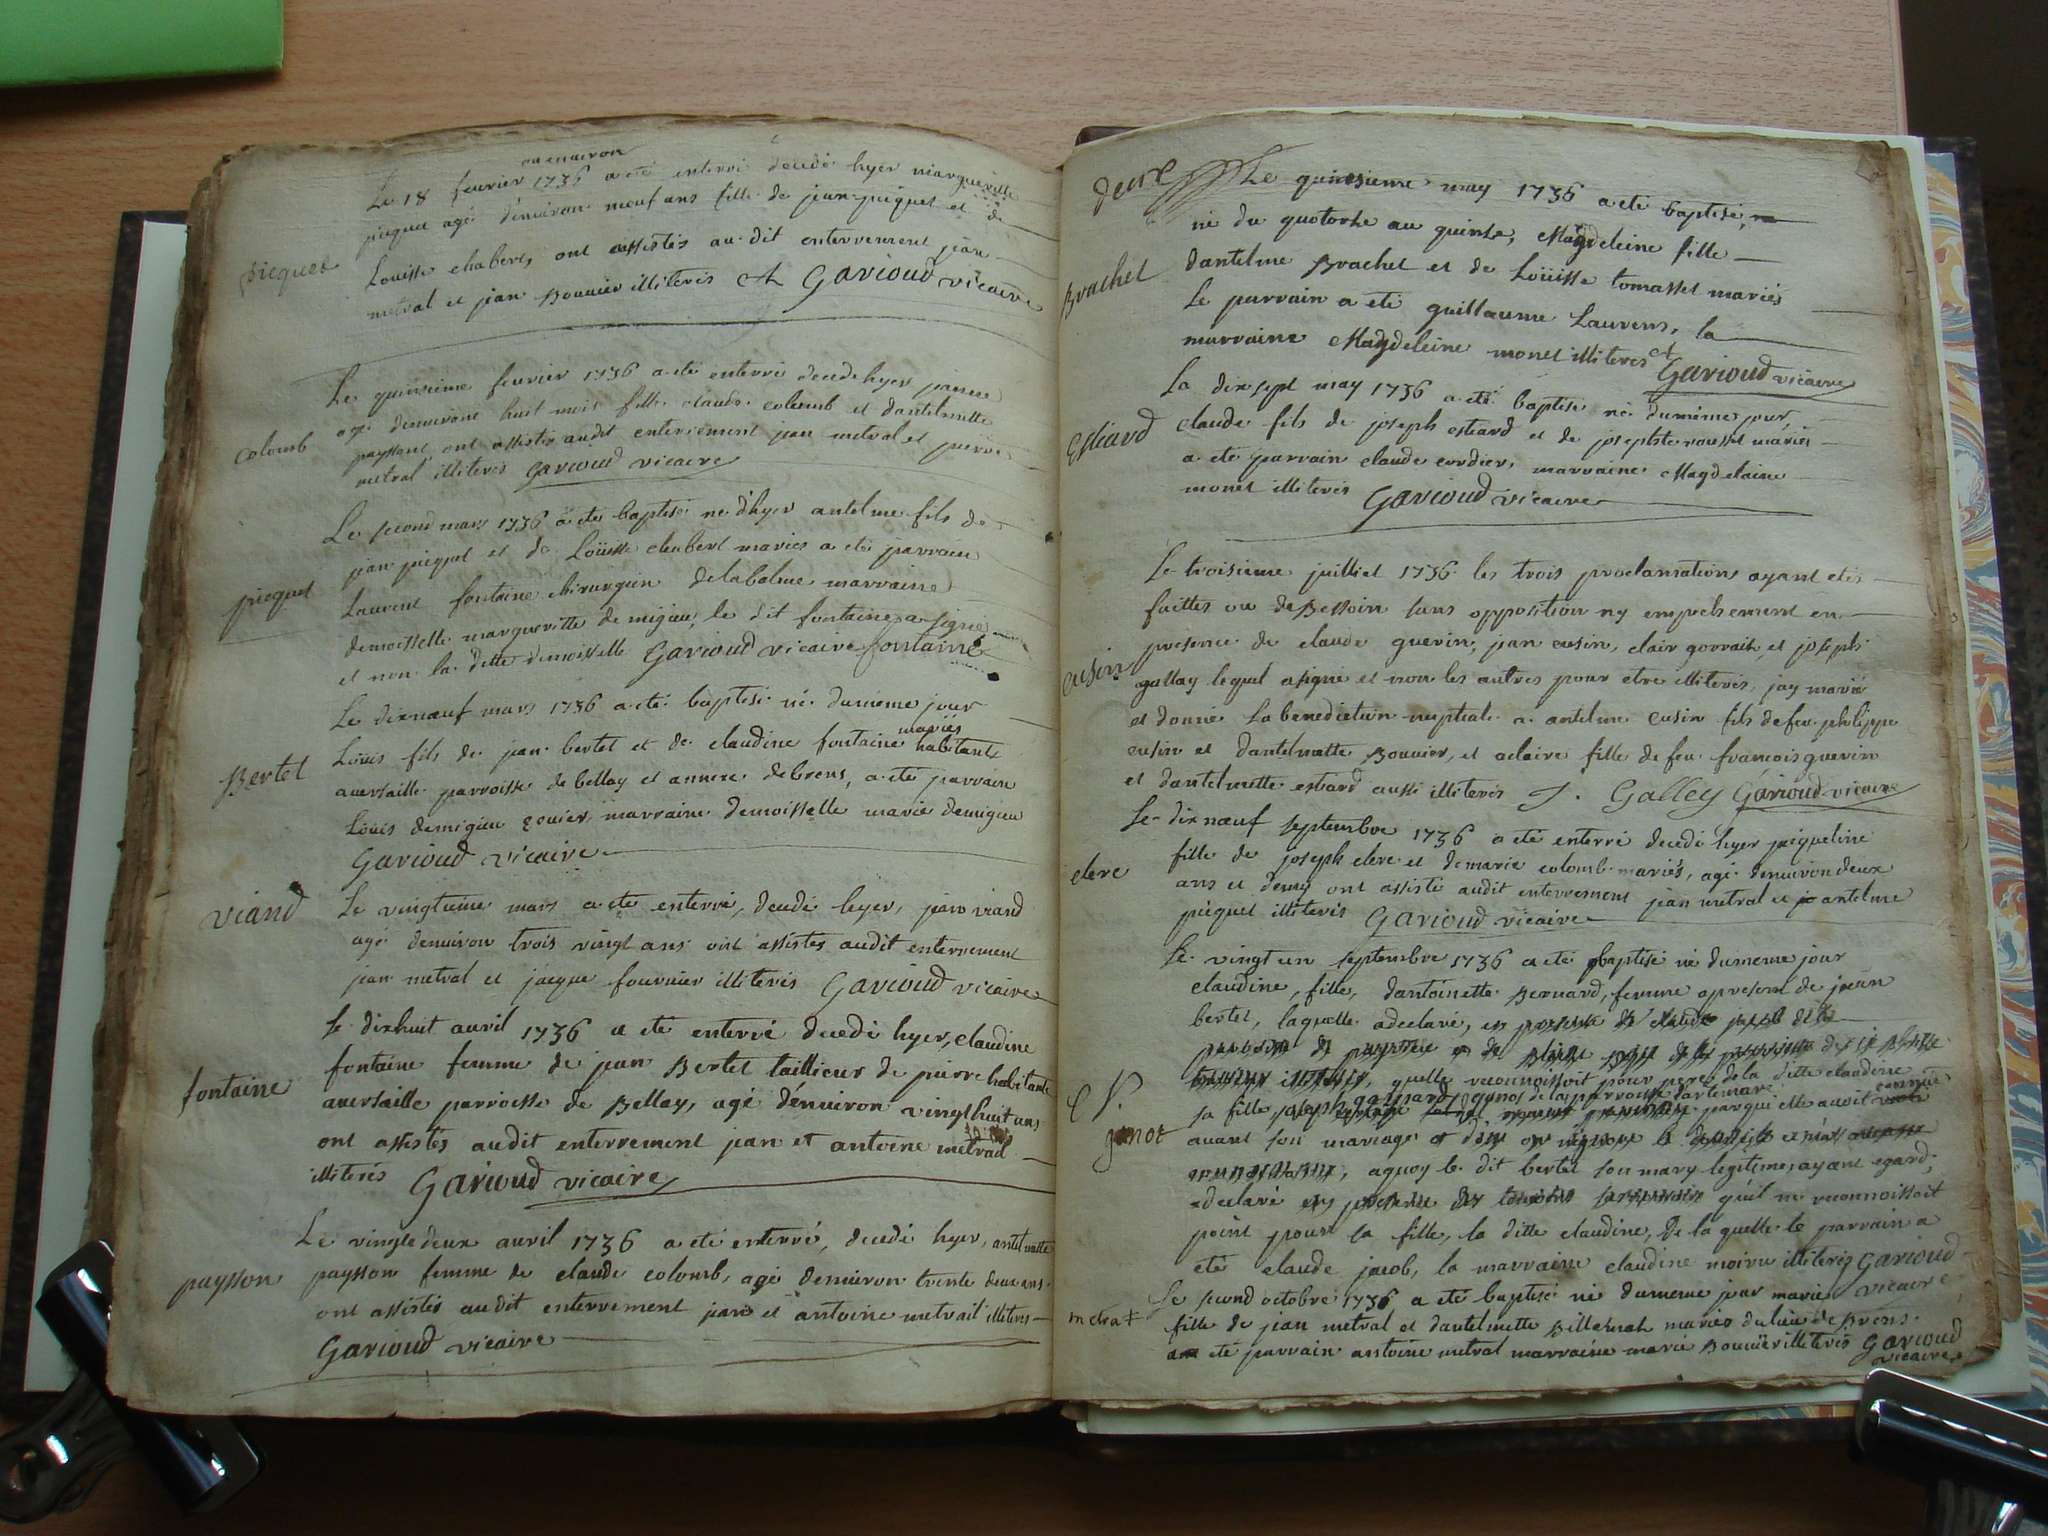 ou environ
Le 18 feurier 1736 a eté enterré decedé hyer marguerille
picquet agé d'enuiron noeuf ans fille de jean picquet et de
picquet
Louisse chabert, ont assistés au dit enterrement jean
metral et jean Bouuier illiterés et Garioud vicaire
Le quinsieme feurier 1736 a eté enterré decedé hyer
agé denuirons huit mois fille claude colomb et dantelmette
colomb
paysson, ont assistés audit enterrement jean metral et pierre
metral illiterés Garioud vicaire
Le second mars 1736 a eté baptisé né d'hyer antelme fils de
jean picquet et de Loüisse chabert mariés a eté parrain
picquet
Laurent fontaine chirurgien delabalme marraine
demoisselle margueritte de migieu, le dit fontaine a signé
et non la ditte demoisselle Garioud vicaire fontaine
Le dixnoeuf mars 1736 a eté baptisé né dumême jour
mariés
Loüis fils de jean bertet et de claudine fontaine habitants
Bertet
auersaille parroisse de bellay et annexe debrens, a eté parrain
Loüis demigieu ecuier, marraine demoisselle marie demigieu
Garioud vicaire
viand
Le vingtieme mars a eté enterré, decedé hyer, jean viand
agé denuiron trois vingt ans ont assistés audit enterrement
jean metral et jacque fournier illiterés Garioud vicaire
Le dixhuit auril 1736 a eté enterré decedé hyer, claudine
fontaine
fontaine femme de jean Bertet taillieur de pierre habitante
auersaille parroisse de Bellay, agé d'enuiron vingthuit ans
ont assistés audit enterrement jean et antoine metral
illiterés Garioud vicaire
Le vingtedeux auril 1736 a eté enterré, decedé hyer, antelmette
paysson
paysson femme de claude colomb, agé denuiron trente deux ans
ont assistés audit enterrement jean et antoine metrail illiterés
Garioud vicaire
Le quinsieme may 1736 a eté baptisé,
né du quatorze au quinze, Magdeleine fille
Brachet
dantelme Brachet et de Loüisse tomasset mariés
Le parrain a eté guillaume Laurens, la
marraine Magdeleine monet illiterés et Garioud vicaire
La dixsept may 1736 a eté baptisé né dumême jour
Estiard
claude fils de joseph estiard et de josephte rousset mariés
a eté parrain claude cordier, marraine Magdelaine
monet illiterés Garioud vicaire
Le troisieme juilliet 1736 les trois proclamations ayant etés
faittes ou de Bessoin sans opposition ny empechement en
presence de claude guerin, jean cusin, clair gorrait, et joseph
cusin
gallay lequel asigné et non les autres pour etre illiterés, jay marié
et donné la benediction nuptiale a antelme cusin fils de feu philippe
cusin et dantelmette Bouuier, et aclaire fille de feu françois guerin
et dantelmette estiard aussi illiterés J. Galley Garioud vicaire
Le dixnoeuf septembre 1736 a eté enterré decedé hyer jacqueline
clerc
fille de joseph clerc et demarie colomb mariés, agé denuiron deux
ans et demy ont assisté audit enterrement jean metral et antelme
picquet illiterés Garioud vicaire
Le vingt un septembre 1736 a eté baptisé né dumeme jour
claudine, fille, dantoinette Bernard, femme apresent de jean
bertet, laquelle adeclaré,
quelle reconnoissoit pour pere de la ditte claudine
sa fille joseph gaspard gynot de la parroisse
gynot
parqui elle auoit connue
auant son mariage
aquoy le dit bertet son mary legitime, ayant egard,
adeclaré qu'il ne reconnoissoit
point pour sa fille, la ditte claudine, de la quelle le parrain a
eté claude jacob, la marraine claudine moirin illiterés Garioud
vicaire
Le second octobre 1736 a eté baptisé né dumeme jour marie
metral
fille de jean metral et dantelmette Billiemat mariés dulieu de Brens
a eté parrain antoine metral marraine marie Bouuier illiterés Garioud
vicaire